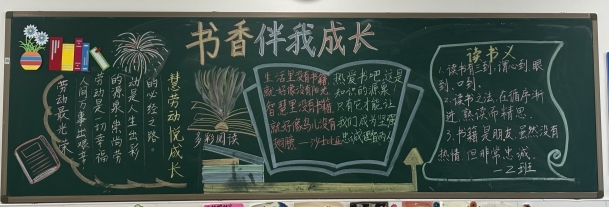 书香伴我成长
慧劳动 悦成长
的必经之路
动是人生出彩
的源泉崇尚劳
劳动是一切幸福
人间万事出艰辛
劳动最光荣
多彩阅读
生活里没有书籍
就好像没有阳光
智慧里没有书籍
就好像鸟儿没有
翅膀——沙士比亚
热爱书吧这是
知识的源泉！
只有它才能让
我们成为坚强
忠诚
读书义
1. 读书有三到,谓心到,眼
到,口到.
2. 读书之法,在循序渐
进,熟读而精思.
3. 书籍是朋友,虽然没有
热情,但非常忠诚.
—2班